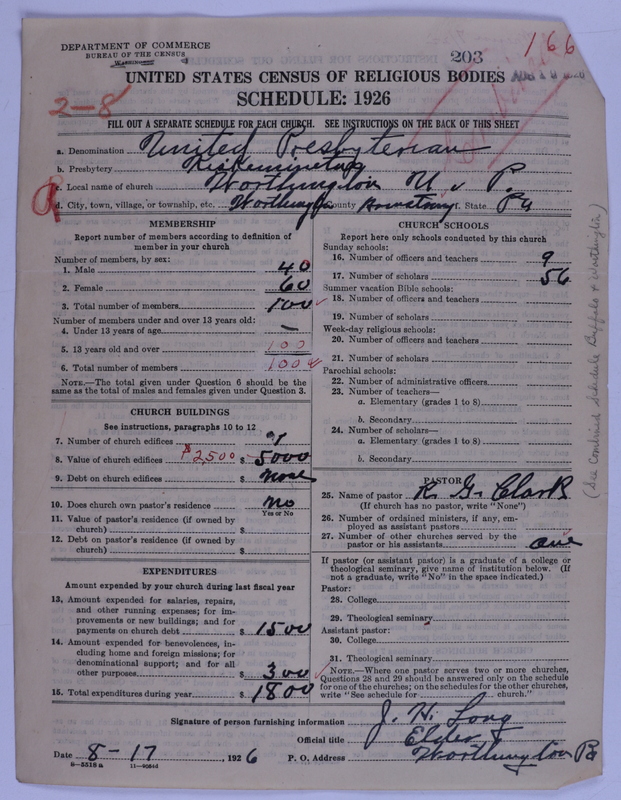 DEPARTMENT OF COMMERCE
BUREAU OF THE CENSUS
WASHINGTON
203
166
UNITED STATES CENSUS OF RELIGIOUS BODIES
2-8
SCHEDULE: 1926
FILL OUT A SEPARATE SCHEDULE FOR EACH CHURCH. SEE INSTRUCTIONS ON THE BACK OF THIS SHEET
a. Denomination United Presbyterian
b. Presbytery Kiskiminetas
c. Local name of church Worthington U. P.
d. City, town, village, or township, etc. Worthington County Armstrong f. State Pa
MEMBERSHIP
Report number of members according to definition of
member in your church
Number of members, by sex:
1. Male 40
2. Female 60
3. Total number of members 100
Number of members under and over 13 years old:
4. Under 13 years of age —
5. 13 years old and over 100
6. Total number of members 100
NOTE.—The total given under Question 6 should be the
same as the total of males and females given under Question 3.
CHURCH BUILDINGS
See instructions, paragraphs 10 to 12
7. Number of church edifices 1
8. Value of church edifices $2,500 $ 5000
9. Debt on church edifices $ none
10. Does church own pastor's residence no
Yes or No
11. Value of pastor's residence (if owned by
church) $
12. Debt on pastor's residence (if owned by
church) $
EXPENDITURES
Amount expended by your church during last fiscal year
13. Amount expended for salaries, repairs,
and other running expenses; for im-
provements or new buildings; and for
payments on church debt $ 1500
14. Amount expended for benevolences, in-
cluding home and foreign missions; for
denominational support; and for all
other purposes $ 300
15. Total expenditures during year $ 1800
CHURCH SCHOOLS
Report here only schools conducted by this church
Sunday schools:
16. Number of officers and teachers 9
17. Number of scholars 56
Summer vacation Bible schools:
18. Number of officers and teachers
19. Number of scholars
Week-day religious schools:
20. Number of officers and teachers
21. Number of scholars
Parochial schools:
22. Number of administrative officers
23. Number of teachers—
a. Elementary (grades 1 to 8)
b. Secondary
24. Number of scholars—
a. Elementary (grades 1 to 8)
b. Secondary
PASTOR
25. Name of pastor R. G. Clark
(If church has no pastor, write "None")
26. Number of ordained ministers, if any, em-
ployed as assistant pastors
27. Number of other churches served by the
pastor or his assistants one
If pastor (or assistant pastor) is a graduate of a college or
theological seminary, give name of institution below. (If
not a graduate, write "No" in the space indicated.)
Pastor:
28. College
29. Theological seminary
Assistant pastor:
30. College
31. Theological seminary
NOTE.—Where one pastor serves two or more churches,
Questions 28 and 29 should be answered only on the schedule
for one of the churches; on the schedules for the other churches,
write "See schedule for church."
(See Combined Schedule Buffalo & Worthington)
Signature of person furnishing information J. H. Long
Official title Elder
Date 8-17, 1926 P. O. Address Worthington Pa
8-5518 a